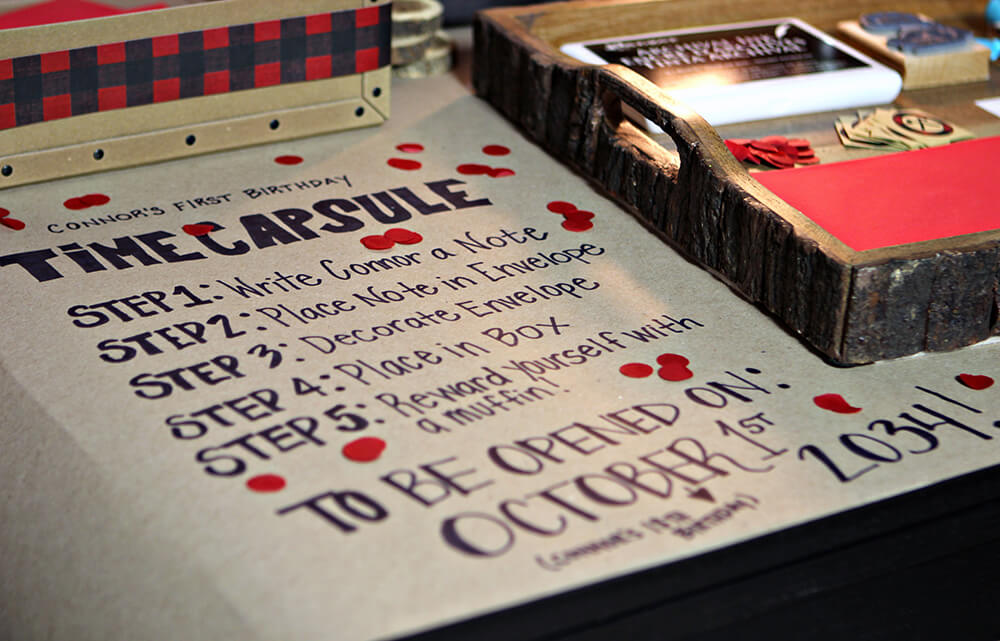 CONNOR'S FIRST BIRTHDAY
TIME CAPSULE
STEP 1: Write Connor a Note
STEP 2: Place Note in Envelope
STEP 3: Decorate Envelope
STEP 4: Place in Box
STEP 5: Reward yourself with
a muffin!
TO BE OPENED ON:
OCTOBER 1ST
2034!
(CONNOR'S 19TH
BIRTHDAY)